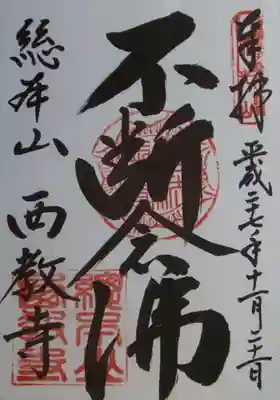 奉拝 平成二七年十一月二十一日
不断念佛
総本山 西教寺